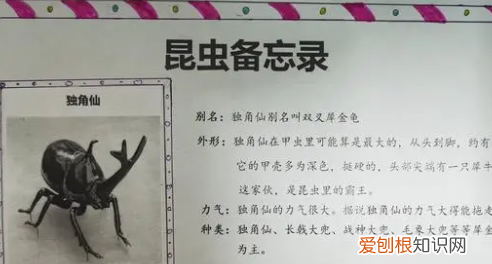 昆虫备忘录
独角仙
别名：独角仙别名叫双叉犀金龟
外形：独角仙在甲虫里可能算是最大的，从头到脚，约有
它的甲壳多为深色，挺硬的，头部尖端有一只犀牛
这家伙，是昆虫里的霸王。
力气：独角仙的力气很大。据说独角仙的力气大得能拖走
种类：独角仙、长戟大兜、战神大兜、毛象大兜等等犀金
为主。
爱刨根知识网
www.baogenzhishi.com